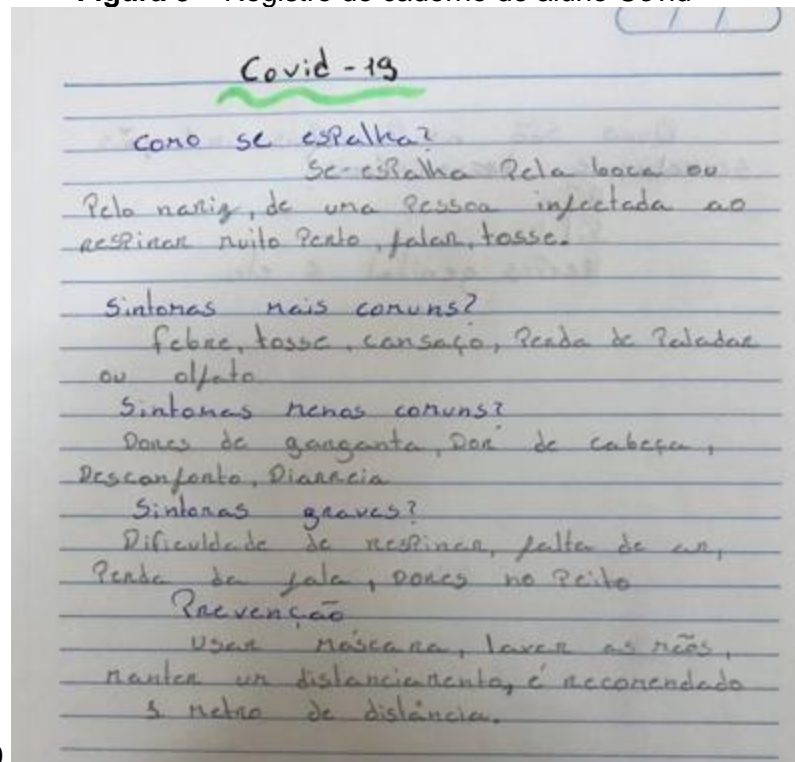 Covid-19
Como se espalha?
Se espalha Pela boca ou
Pelo nariz, de uma Pessoa infectada ao
respirar muito Perto, falar, tosse.
Sintomas mais comuns?
febre, tosse, cansaço, Perda de Paladar
ou olfato
Sintomas menos comuns?
Dores de garganta, Dor de cabeça,
Desconforto, Diarreia
Sintomas graves?
Dificuldade de respirar, falta de ar,
Perda da fala, Dores no Peito
Prevenção
Usar máscara, lavar as mãos,
manter um distanciamento, é recomendado
1 metro de distância.